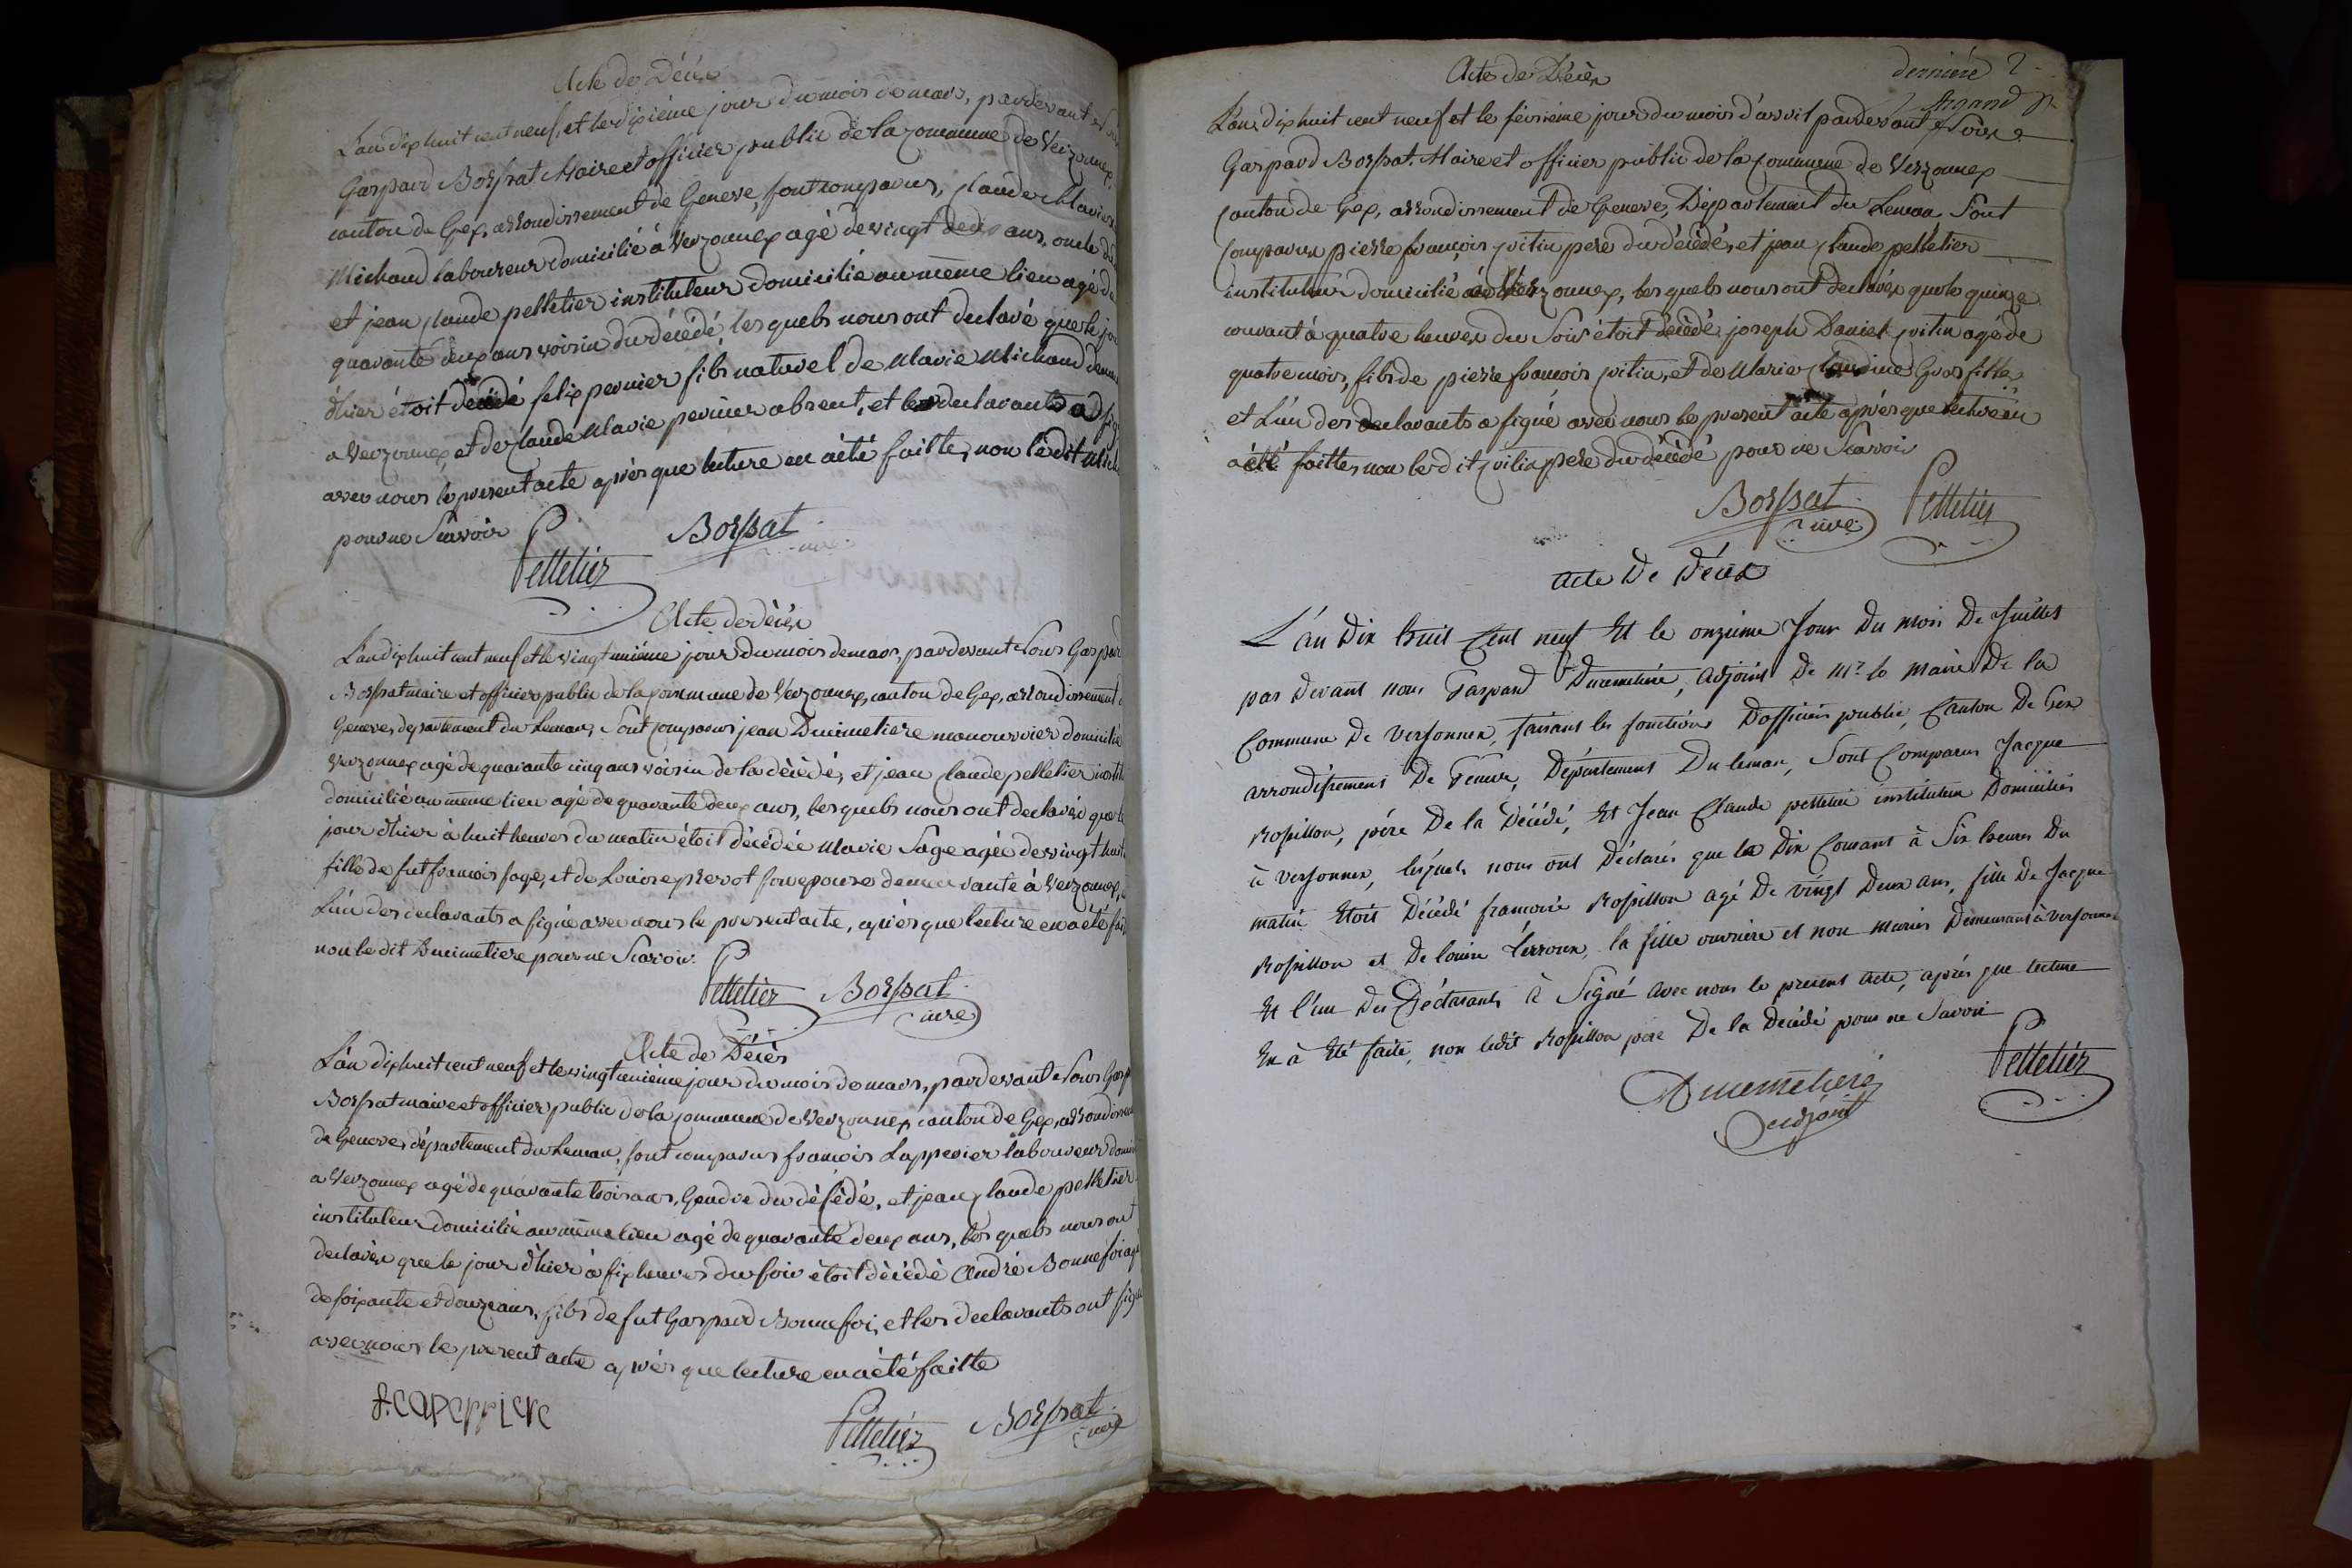 Acte de Décès
L'an dix huit cent neuf, et le dixième jour du mois de mars, pardevant Nous
Gaspard Bossat Maire et officier public de la commune de Verzonnex,
canton de Gex, arrondissement de Geneve, sont comparus, Claude Marie
Michaud laboureur domicilié à Verzonnex agé de vingt deux ans, oncle du
et jean claude pelletier instituteur domicilié au même lieu agé de
quarante deux ans voisin du décédé, les quels nous ont declaré que le jour
d'hier étoit décédé felix pernier fils naturel de Marie Michaud
a Verzonnex, et de claude Marie pernier absent, et les declarants
avec nous le present acte après que lecture en a été faitte, non le dit
pour ne Scavoir
Pelletier Bossat
Acte de décès
L'an dix huit cent neuf et le vingt unième jour du mois de mars, pardevant Nous Gaspard
Bossat maire et officier public de la commune de Verzonnex, canton de Gex, arrondissement
Geneve, departement du Leman, Sont comparus jean Ducimetiere manouvrier domicilié
Verzonnex agé de quarante cinq ans voisin de la décédé, et jean claude pelletier
domicilié au même lieu agé de quarante deux ans, les quels nous ont declarés que le
jour d'hier à huit heures du matin étoit décédée Marie Sage agée de vingt huit
fille de fut francois sage, et de Louise pierrot son epouse demeurante à Verzonnex,
L'un des declarants a signé avec nous le present acte, après que lecture en a été
non le dit Ducimetiere pour ne Scavoir.
Pelletier Bossat
mre
Acte de Décès
L'an dix huit cent neuf et le vingt unième jour du mois de mars, pardevant Nous
Bossat maire et officier public de la commune de Verzonnex canton de Gex,
de Geneve, département du Leman, sont comparus francois Lapperier laboureur
a Verzonnex agé de quarante trois ans, Gendre du défédé, et jean claude pelletier
instituteur domicilié au même lieu agé de quarante deux ans, les quels nous ont
declarés que le jour d'hier à six heures du soir étoit décédé André Bonnefoi
de soixante et douze ans, fils de fut Gaspard Bonnefoi, et les declarants ont
avec nous le present acte après que lecture en a été faitte
Pelletier Bossat
Acte de Décès
derniere
L'an dix huit cent neuf et le seizième jour du mois d'avril pardevant Nous
Gaspard Bossat. Maire et officier public de la commune de Verzonnex
canton de Gex, arrondissement de Geneve, Département du Leman Sont
comparus pierre françois vitin pere du décédé, et jean claude pelletier
instituteur domicilié à Verzonnex, les quels nous ont declarés que le quinze
courant à quatre heures du Soir étoit décédé joseph Daniel vitin agé de
quatre mois, fils de pierre francois vitin, et de Marie Claudine Grosfille,
et L'un des declarants a signé avec nous le present acte après que lecture en
a été faitte, non le dit vitin pere du décédé pour ne Scavoir
Bossat Pelletier
mre
Acte De Décès
L'an Dix huit Cent neuf Et le onzieme Jour Du mois De Juillet
par Devant nous Gaspard Ducimetière, adjoint De Mr. le Maire De la
Commune De Versonnex, faisant les fonctions D'officier public, Canton De Gex
arrondissement De Geneve, Département Du leman, Sont Comparus Jacque
Rossillon, père De la Décédé, Et Jean Claude pelletier instituteur Domiciliés
à Versonnex, lesquels nous ont Déclarés que le Dix Courant à Six heures Du
matin Etoit Décédé francoise Rossillon agé De vingt Deux ans, fille De Jacque
Rossillon et De louise Perroux, la fille ouvriere et non mariés Demeurant à Versonnex
Et l'un Des Déclarants à Signé avec nous le présent acte, après que lecture
En à Eté faite, non ledit Rossillon père De la Décédé pour ne Savoir
Ducimetiere Pelletier
adjoint